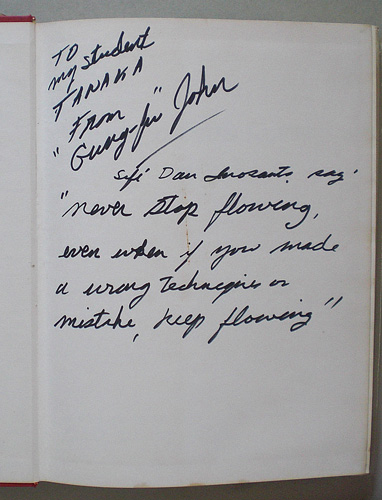 TO
my student
TANAKA
From
"Gung-fu" John
Sifi Dan Inosanto, say'
"never stop flowing,
even when if you made
a wrong techneqnies or
mistake, keep flowing"